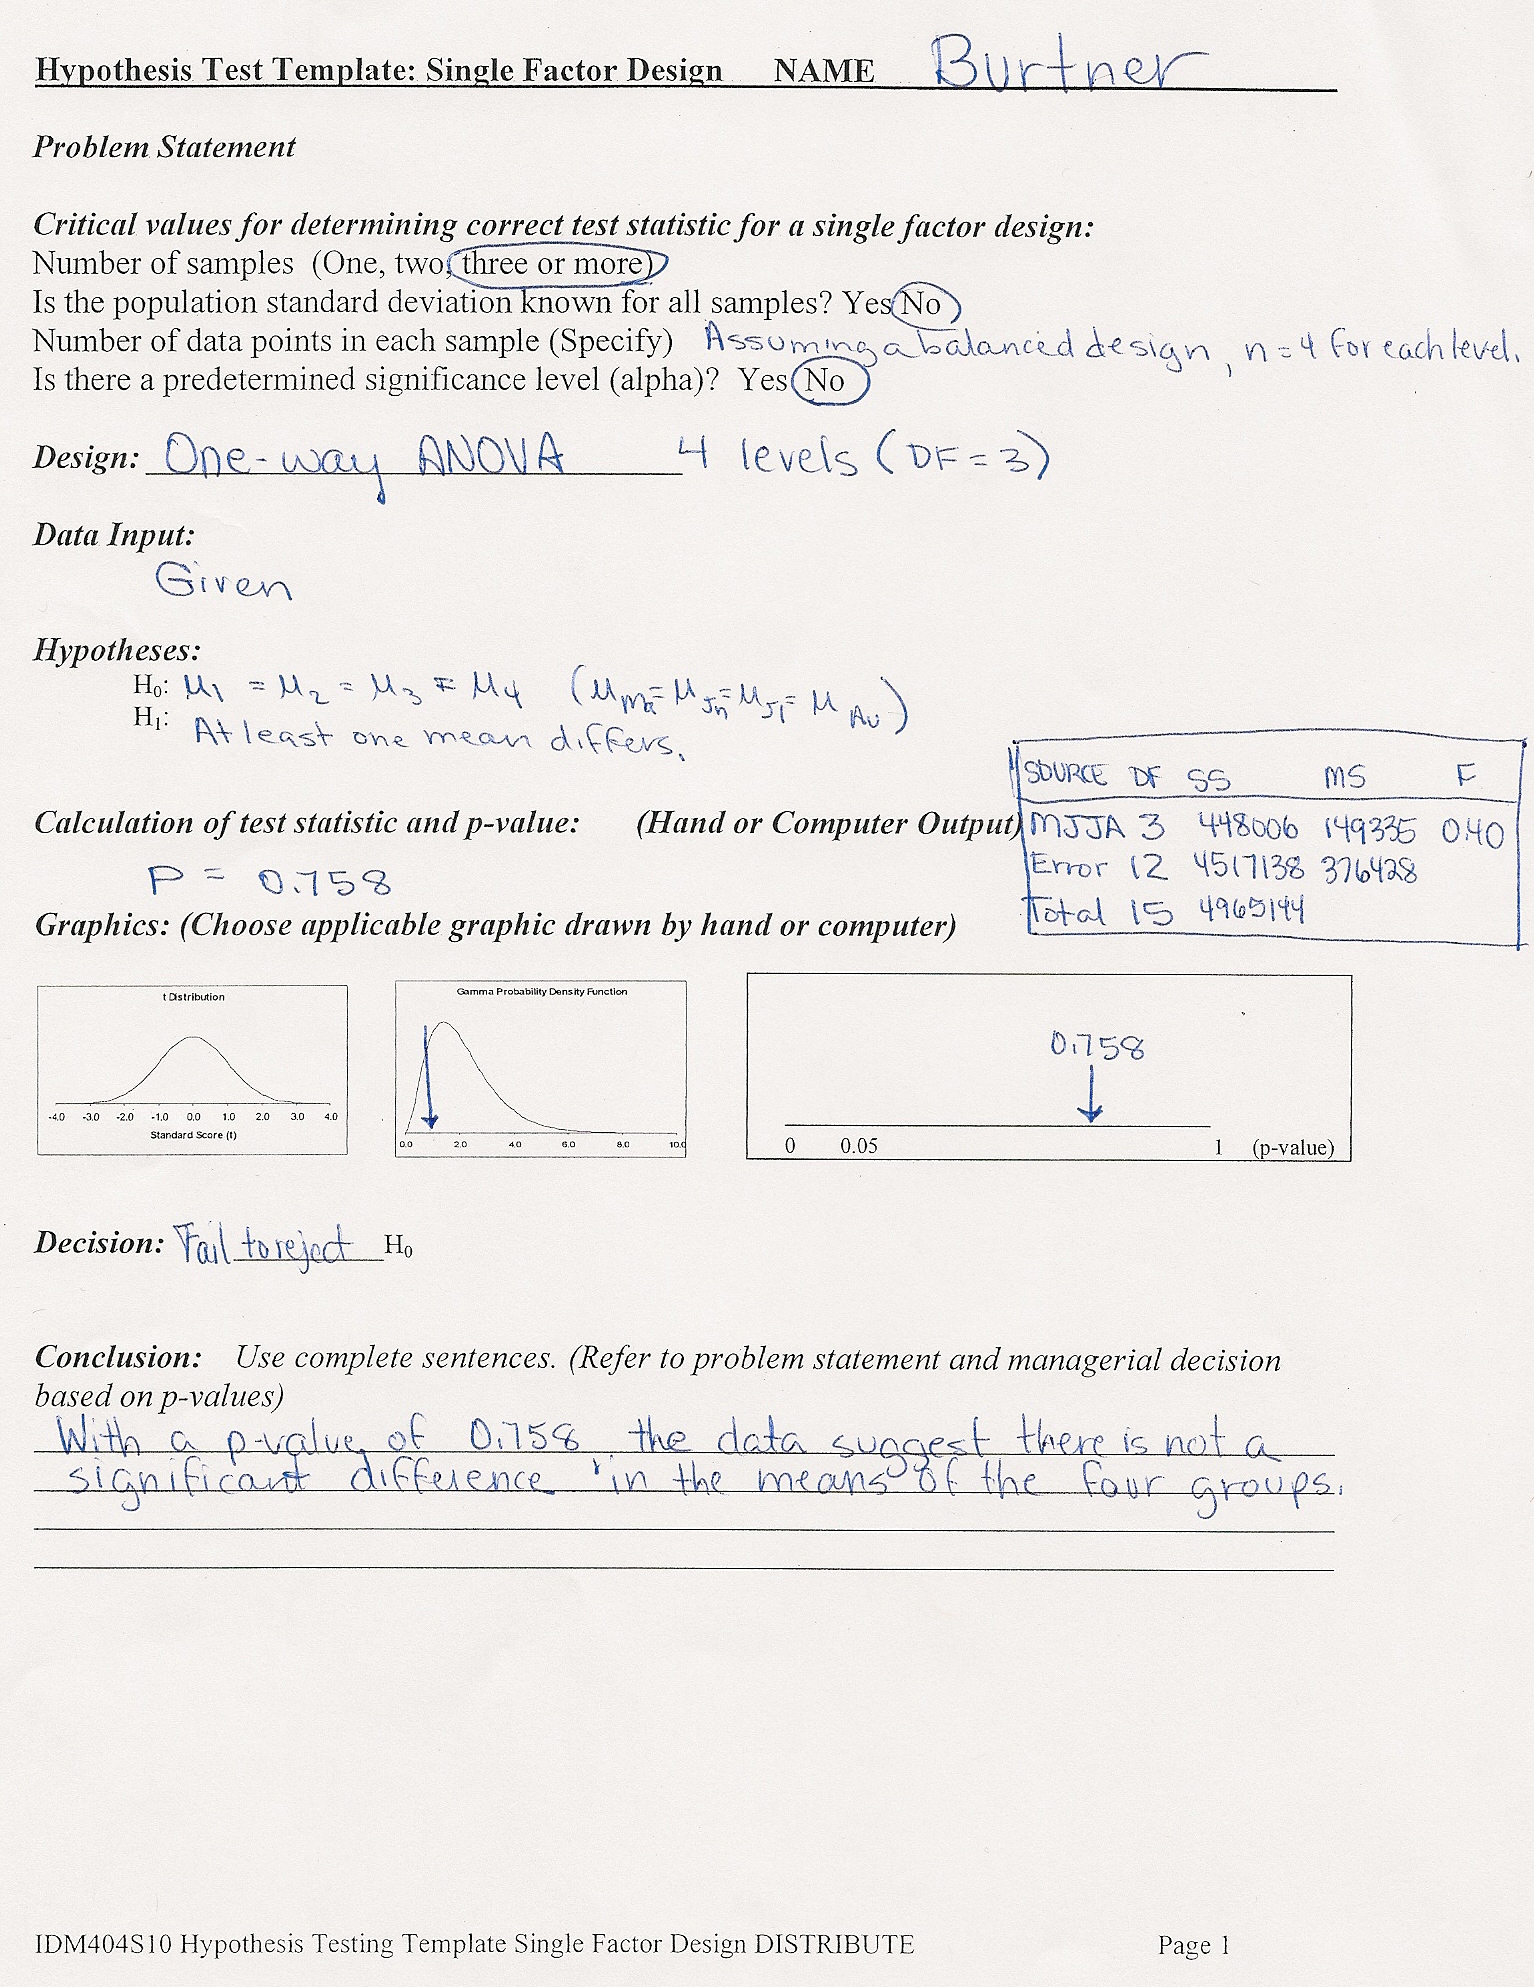 Hypothesis Test Template: Single Factor Design NAME Burtner
Problem Statement
Critical values for determining correct test statistic for a single factor design:
Number of samples (One, two, three or more)
Is the population standard deviation known for all samples? Yes No
Number of data points in each sample (Specify) Assuming a balanced design, n = 4 for each level.
Is there a predetermined significance level (alpha)? Yes No
Design: One-way ANOVA 4 levels (DF = 3)
Data Input:
Given
Hypotheses:
H₀: μ₁ = μ₂ = μ₃ = μ₄ (μMa = μJn = μJl = μAu)
H₁: At least one mean differs.
SOURCE DF SS MS F
MJJA 3 448006 149335 0.40
Error 12 4517138 376428
Total 15 4965144
Calculation of test statistic and p-value: (Hand or Computer Output)
P = 0.758
Graphics: (Choose applicable graphic drawn by hand or computer)
t Distribution
-4.0 -3.0 -2.0 -1.0 0.0 1.0 2.0 3.0 4.0
Standard Score (t)
Gamma Probability Density Function
0.0 2.0 4.0 6.0 8.0 10.0
0.758
0 0.05 1 (p-value)
Decision: Fail to reject H₀
Conclusion: Use complete sentences. (Refer to problem statement and managerial decision
based on p-values)
With a p-value of 0.758, the data suggest there is not a
significant difference in the means of the four groups.
IDM404S10 Hypothesis Testing Template Single Factor Design DISTRIBUTE Page 1